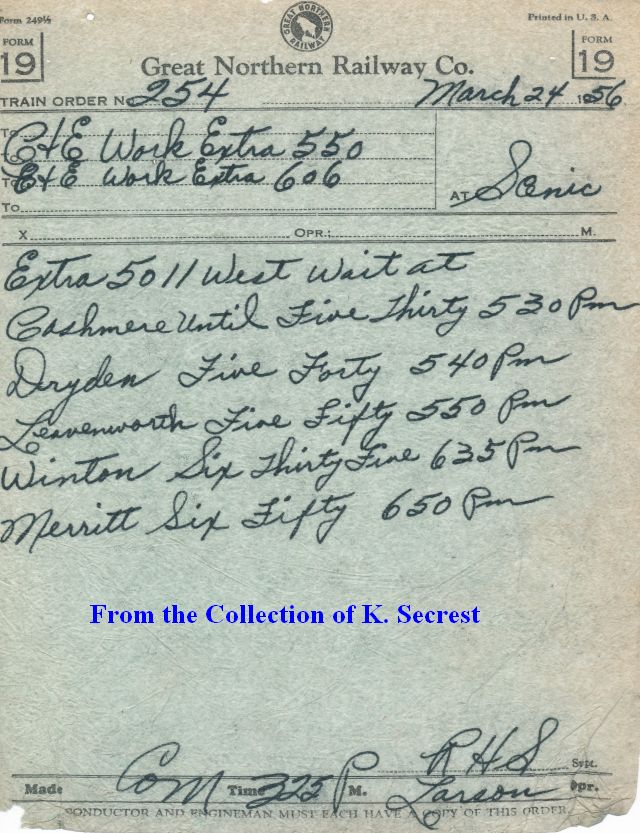 Form 249½
Printed in U. S. A.
FORM 19
GREAT NORTHERN RAILWAY
FORM 19
Great Northern Railway Co.
TRAIN ORDER No 254 March 24 1956
To C+E Work Extra 550
To C+E Work Extra 606
To
To
AT Scenic
X OPR.: M.
Extra 5011 West Wait at
Cashmere Until Five Thirty 530 Pm
Dryden Five Forty 540 Pm
Leavenworth Five Fifty 550 Pm
Winton Six Thirty Five 635 Pm
Merritt Six Fifty 650 Pm
From the Collection of K. Secrest
R H S Supt.
Made Com Time 325 P M. Larson Opr.
CONDUCTOR AND ENGINEMAN MUST EACH HAVE A COPY OF THIS ORDER